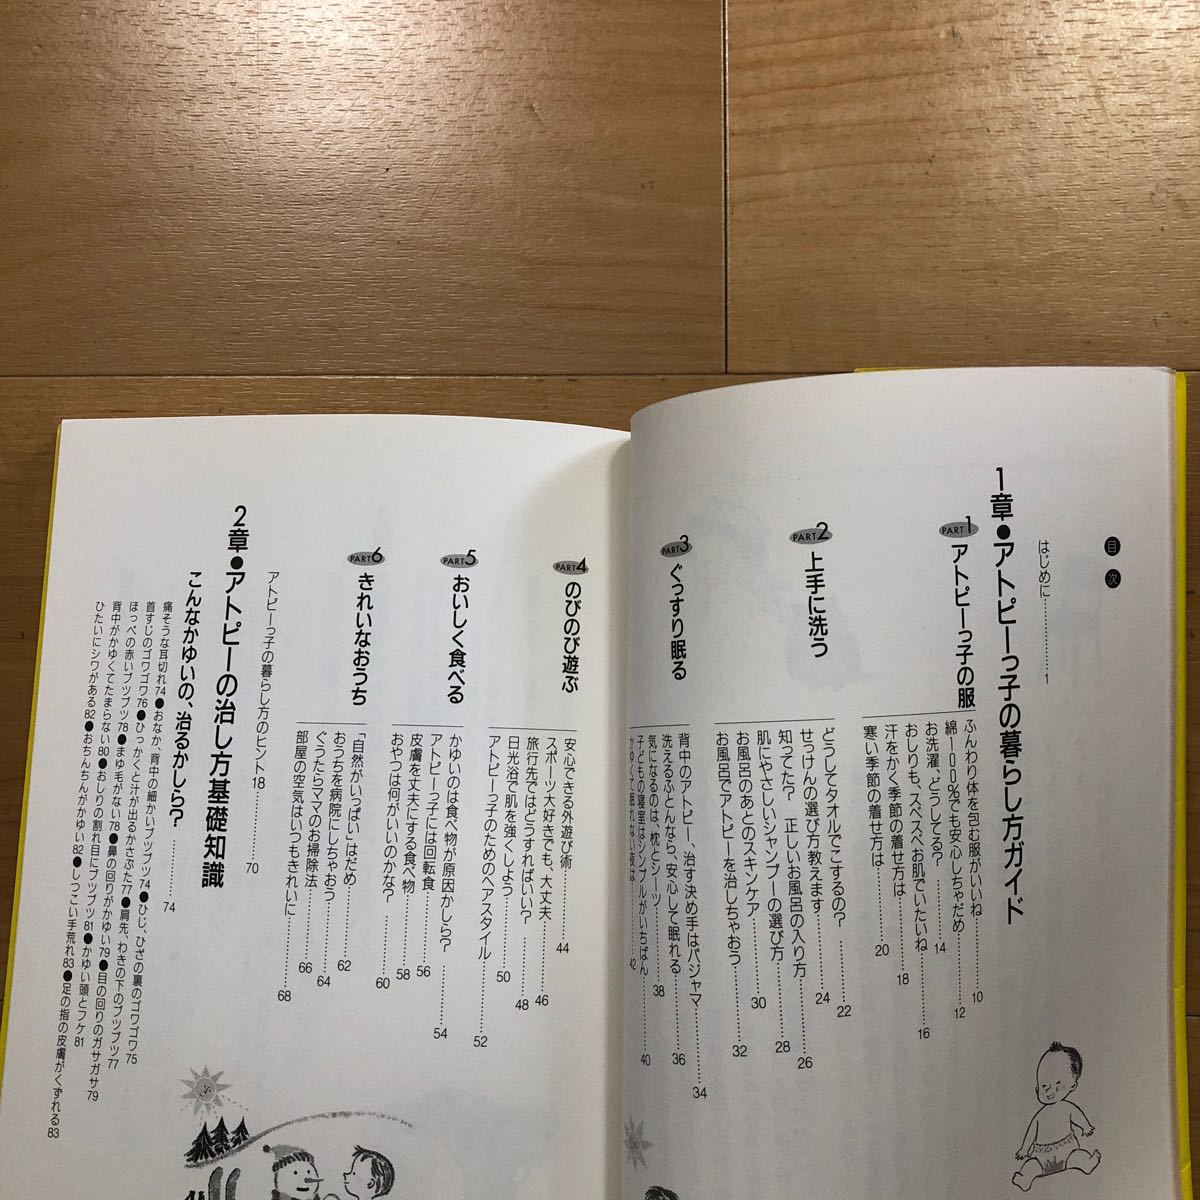 目次
はじめに…………1
1章●アトピーっ子の暮らし方ガイド
PART1 アトピーっ子の服
ふんわり体を包む服がいいね……10
綿100%でも安心しちゃだめ……12
お洗濯、どうしてる?……14
おしりも、スベスベお肌でいたいね……16
汗をかく季節の着せ方は……18
寒い季節の着せ方は……20
PART2 上手に洗う
どうしてタオルでこするの?……22
せっけんの選び方教えます……24
知ってた? 正しいお風呂の入り方……26
肌にやさしいシャンプーの選び方……28
お風呂のあとのスキンケア……30
お風呂でアトピーを治しちゃおう……32
PART3 ぐっすり眠る
背中のアトピー、治す決め手はパジャマ……34
洗えるふとんなら、安心して眠れる……36
気になるのは、枕とシーツ……38
子どもの寝室はシンプルがいちばん……40
かゆくて眠れない夜は……42
PART4 のびのび遊ぶ
安心できる外遊び術……44
スポーツ大好きでも、大丈夫……46
旅行先ではどうすればいい?……48
日光浴で肌を強くしよう……50
アトピーっ子のためのヘアスタイル……52
PART5 おいしく食べる
かゆいのは食べ物が原因かしら?……54
アトピーっ子には回転食……56
皮膚を丈夫にする食べ物……58
おやつは何がいいのかな?……60
PART6 きれいなおうち
「自然がいっぱい」はだめ……62
おうちを病院にしちゃおう……64
ぐうたらママのお掃除法……66
部屋の空気はいつもきれいに……68
アトピーっ子の暮らし方のヒント18……70
2章●アトピーの治し方基礎知識
こんなかゆいの、治るかしら?……74
痛そうな耳切れ74●おなか、背中の細かいブツブツ74●ひじ、ひざの裏のゴワゴワ75
首すじのゴワゴワ76●ひっかくと汁が出るかさぶた77●肩先、わきの下のブツブツ77
ほっぺの赤いブツブツ78●まゆ毛がない78●鼻の回りがかゆい79●目の回りのガサガサ79
背中がかゆくてたまらない80●おしりの割れ目にブツブツ81●かゆい頭とフケ81
ひたいにシワがある82●おちんちんがかゆい82●しつこい手荒れ83●足の指の皮膚がくずれる83